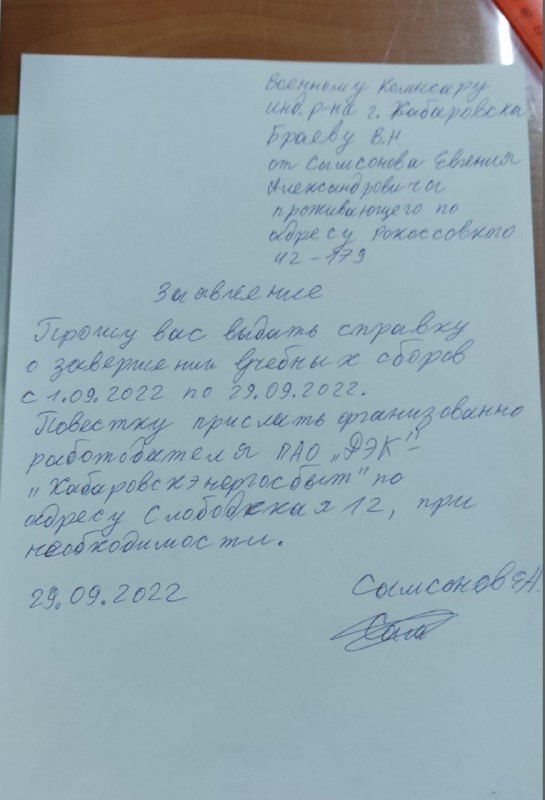 Военному комисару
инд. р-на г. Хабаровска
Браеву В.Н
от Сымсонова Евгения
Александровича
проживающего по
адресу Рокоссовкого
42-179
Заявление
Прошу вас выдать справку
о завершении учебных сборов
с 1.09.2022 по 29.09.2022.
Повестку прислать организованно
работобателя ПАО „ДЭК"-
„Хабаровскэнергосбыт" по
адресу Слободская 12, при
необходимости.
29.09.2022
Сымсонов Е А.